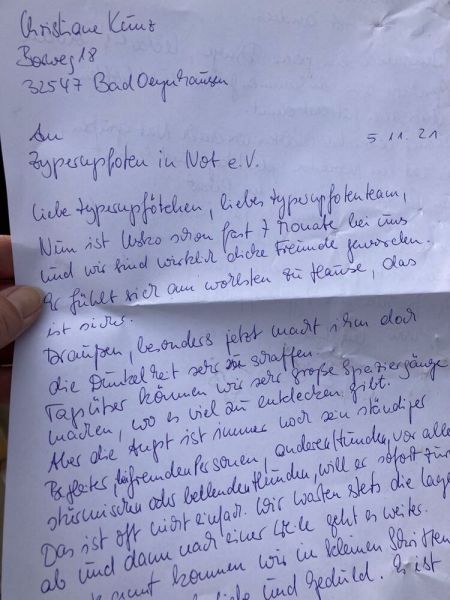 Christiane Kunz
Borweg 18
32547 Bad Oeynhausen
An
5.11.21
Zypernpfoten in Not e.V.
Liebe Zypernpfötchen, liebes Zypernpfotenteam,
Nun ist Usko schon fast 7 Monate bei uns
und wir sind wirklich dicke Freunde geworden.
Er fühlt sich am wohlsten zu Hause, das
ist sicher.
Draußen, besonders jetzt macht ihm doch
die Dunkelheit sehr zu schaffen.
Tagsüber können wir sehr große Spaziergänge
machen, wo es viel zu entdecken gibt.
Aber die Angst ist immer noch sein ständiger
Begleiter, bei fremden Personen, anderen Hunden, vor alle
stürmischen oder bellenden Hunden, will er sofort
Das ist oft nicht einfach. Wir warten stets die Lage
ab und dann nach einer Weile geht es weiter.
können wir in kleinen Schritten
und Geduld. Es ist